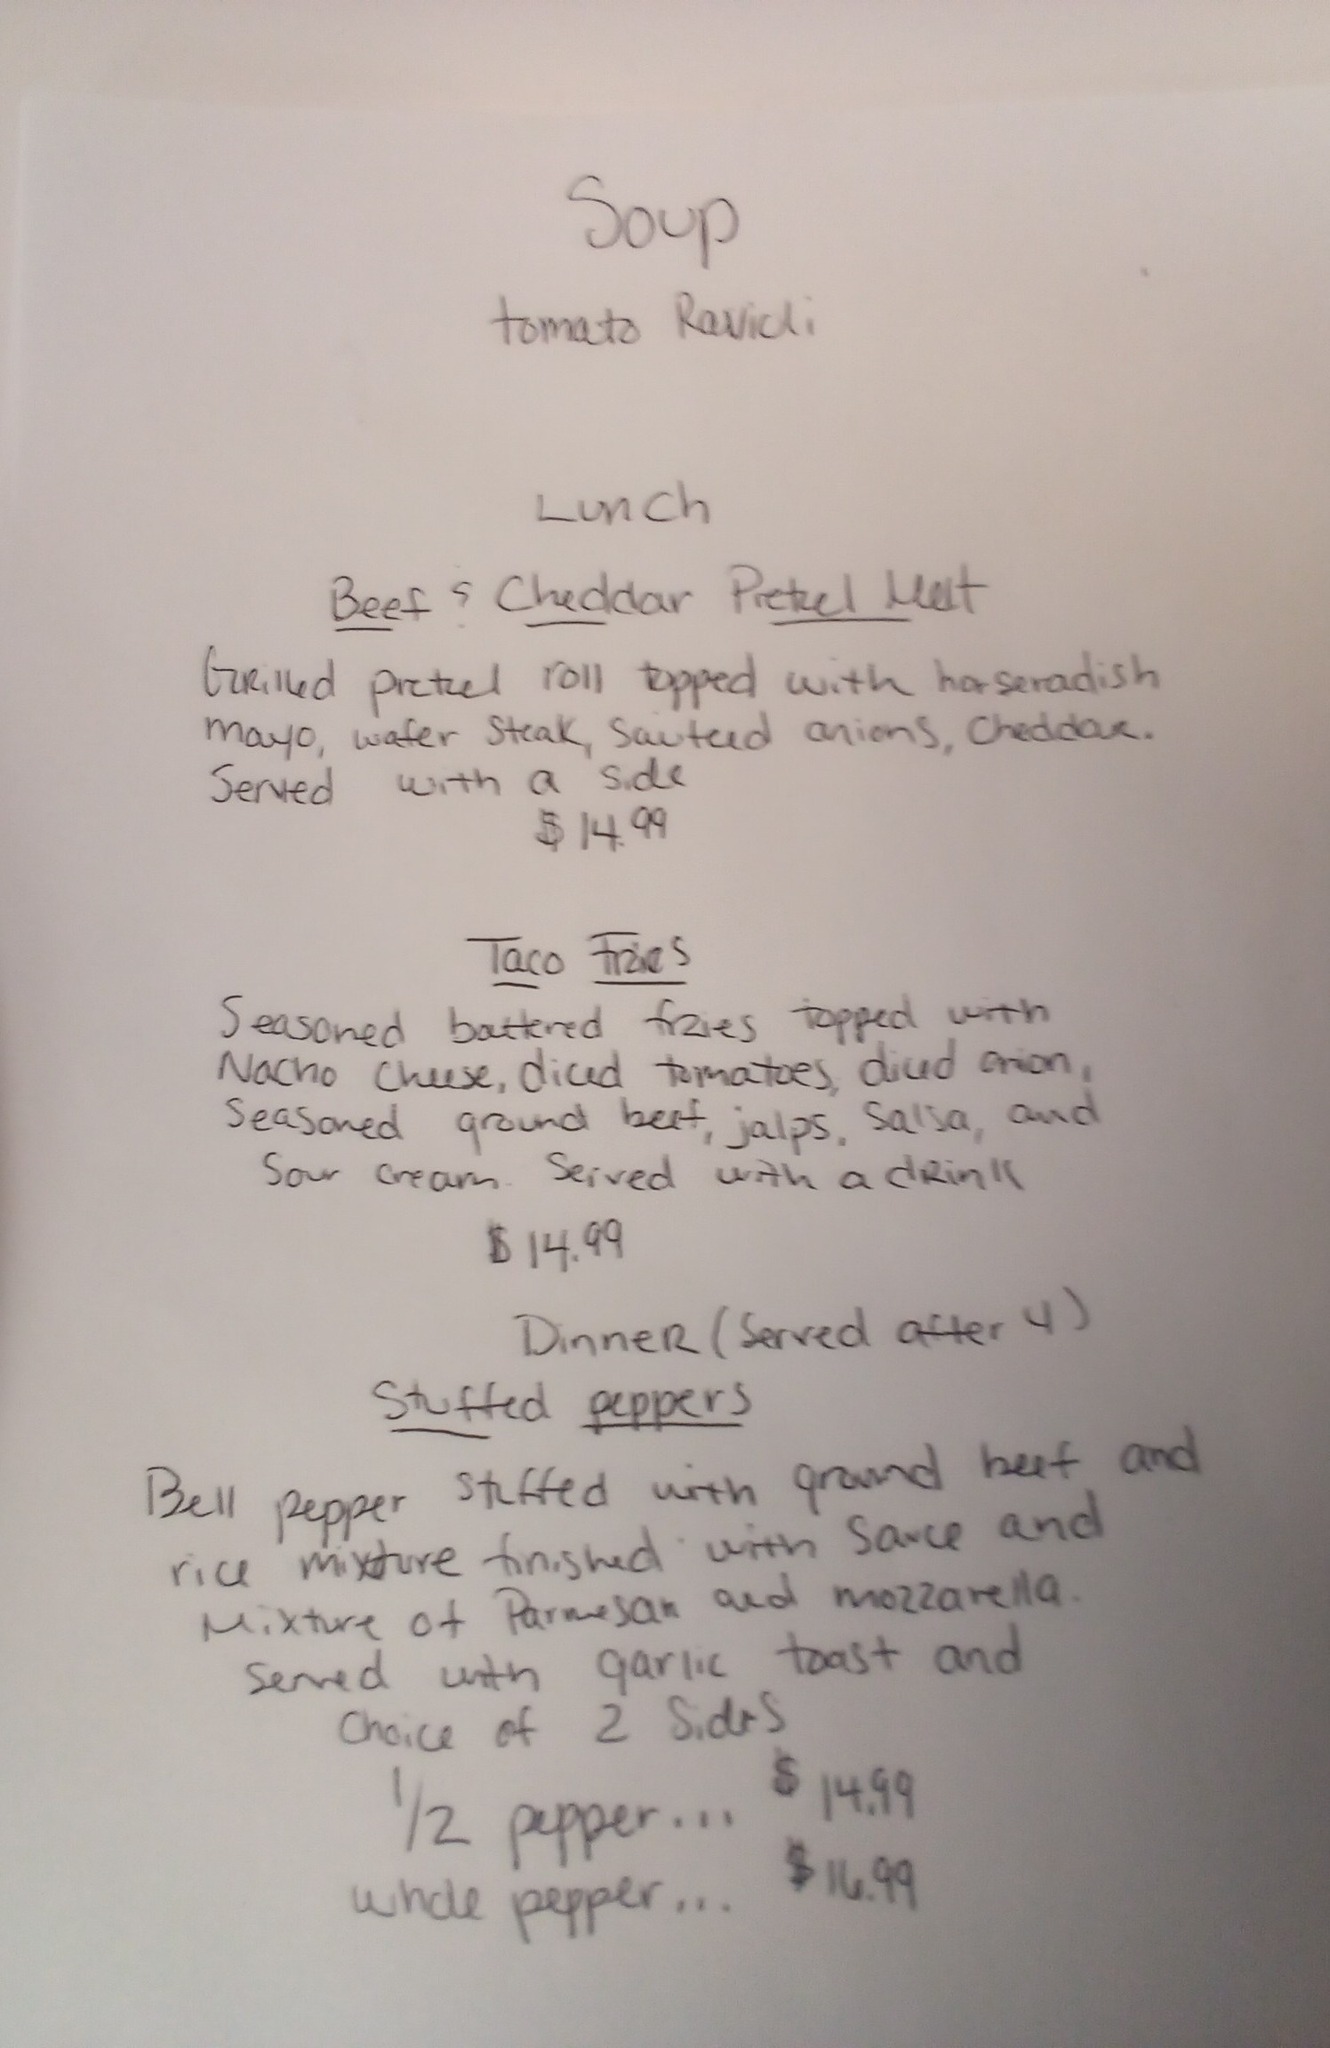 Soup
tomato Ravioli
Lunch
Beef & Cheddar Pretzel Melt
Grilled pretzel roll topped with horseradish
mayo, wafer steak, sauteed onions, cheddar.
Served with a side
$14.99
Taco Fries
Seasoned battered fries topped with
Nacho cheese, diced tomatoes, diced onion,
seasoned ground beef, jalps, salsa, and
sour cream. Served with a drink
$14.99
Dinner (Served after 4)
Stuffed peppers
Bell pepper stuffed with ground beef and
rice mixture finished with sauce and
mixture of Parmesan and mozzarella.
served with garlic toast and
choice of 2 sides
1/2 pepper... $14.99
whole pepper... $16.99